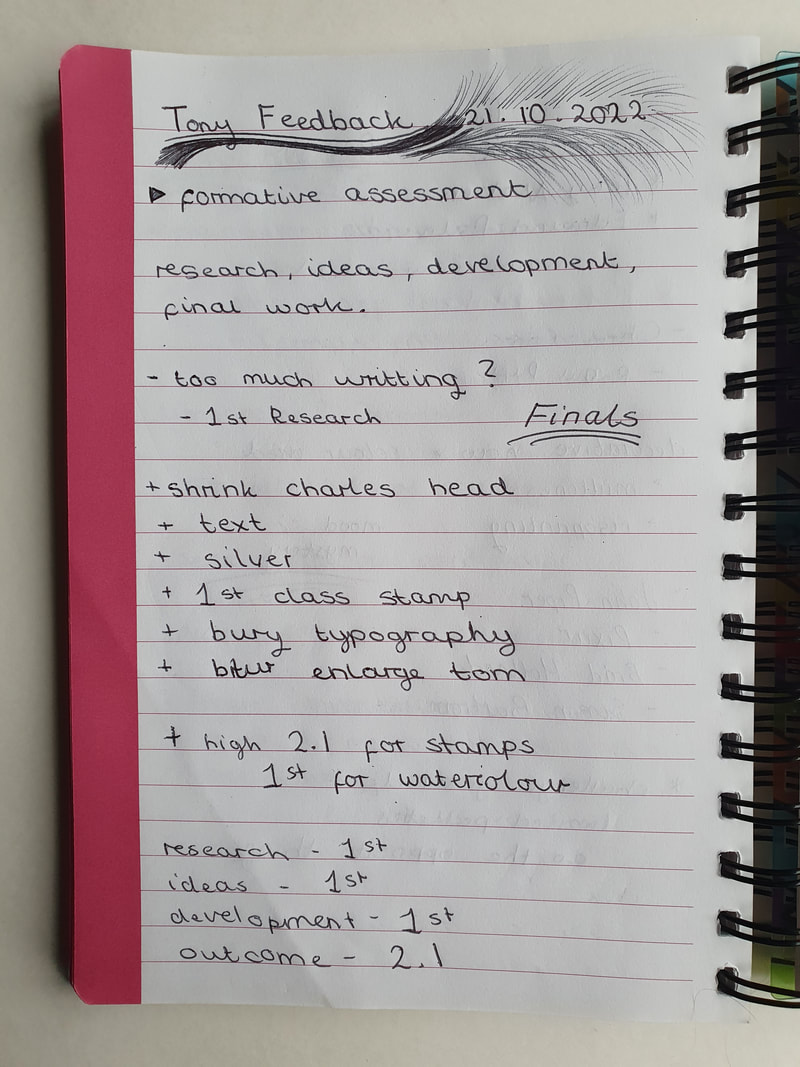 Tony Feedback 21.10.2022
▶ formative assessment
research, ideas, development,
final work.
- too much writting?
- 1st Research
Finals
+ shrink charles head
+ text
+ silver
+ 1st class stamp
+ bury typography
+ enlarge tom
+ high 2.1 for stamps
1st for watercolour
research - 1st
ideas - 1st
development - 1st
outcome - 2.1